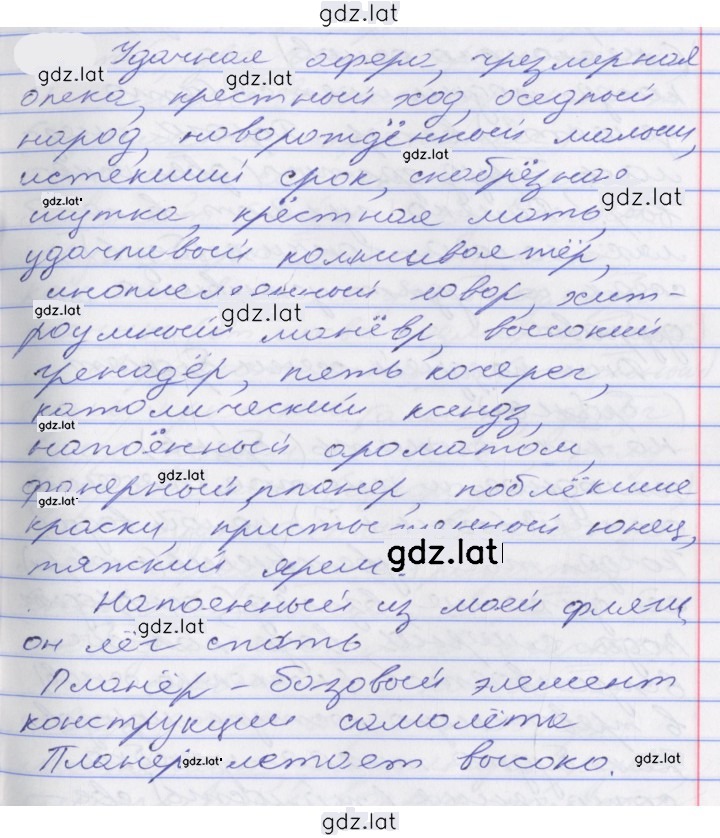 gdz.lat
Удачная афера, чрезмерная
gdz.lat gdz.lat
опека, крестный ход, оседлый
народ, новорождённый малыш,
gdz.lat
истекший срок, скабрёзная
gdz.lat gdz.lat
шутка, крёстная мать,
удачливый коммивояжёр,
иноплеменный говор, хит-
gdz.lat gdz.lat
роумный манёвр, высокий
гренадёр, пять кочерег,
католический ксендз,
gdz.lat
напоённый ароматом,
gdz.lat
фанерный планер, поблёкшие
gdz.lat
краски, пристыженный юнец,
gdz.lat
тяжкий
Напоенный из моей фляги
gdz.lat
он лёг спать
Планёр - базовый элемент
конструкции самолёта
Планер летает высоко.
gdz.lat gdz.lat
gdz.lat